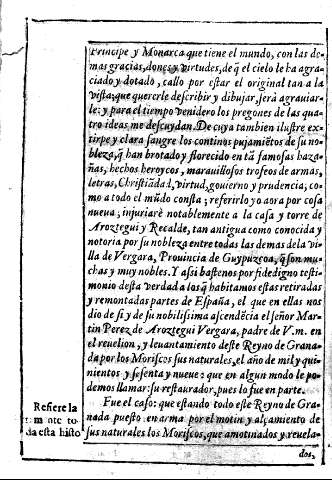 Principe y Monarca que tiene el mundo, con las de-
mas gracias, dones y virtudes, de q̃ el cielo le ha agra-
ciado y dotado, callo por estar el original tan a la
vista, que quererle describir y dibujar, serà agrauiar-
le: y para el tiempo venidero los pregones de las qua-
tro ideas me descuydan. De cuya tambien ilustre ex-
tirpe y clara sangre los continos pujamiẽtos de su no-
bleza, q̃ han brotado y florecido en tã famosas haza-
ñas, hechos heroycos, marauillosos trofeos de armas,
letras, Christiãdad, virtud, gouierno y prudencia, co-
mo a todo el mũdo consta; referirlo yo aora por cosa
nueua; injuriarè notablemente a la casa y torre de
Aroztegui y Recalde, tan antigua como conocida y
notoria por su nobleza entre todas las demas dela vi-
lla de Vergara, Prouincia de Guypuzcoa, q̃ son mu-
chas y muy nobles. Y assi bastenos por fidedigno testi-
monio desta verdad a los q̃ habitamos estas retiradas
y remontadas partes de España, el que en ellas nos
dio de si y de su nobilissima ascendẽcia el señor Mar-
tin Perez de Aroztegui Vergara, padre de V.m. en
el reuelion, y leuantamiento deste Reyno de Grana-
da por los Moriscos sus naturales, el año de mil y qui-
nientos y sesenta y nueue: que en algun modo le po-
demos llamar su restaurador, pues lo fue en parte.
Fue el caso: que estando todo este Reyno de Gra-
nada puesto en arma por el motin y alçamiento de
sus naturales los Moriscos, que amotinados y reuela-
dos,
Refiere la
to
da esta histo